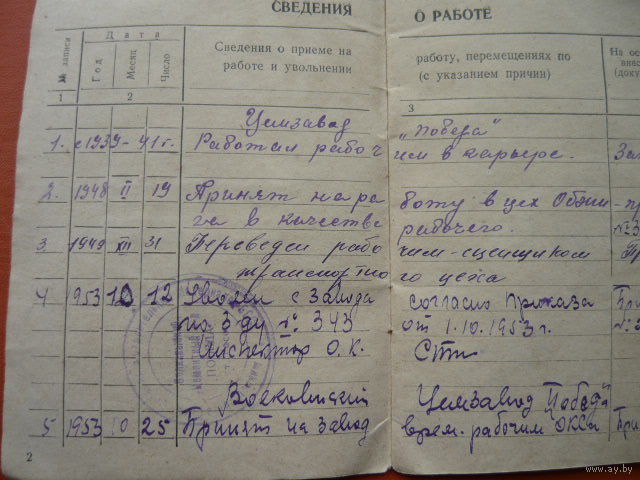 СВЕДЕНИЯ О РАБОТЕ
№ записи Дата Сведения о приеме на работу, перемещениях по На ос
Год Месяц Число работе и увольнении (с указанием причин) внес (доку
1 2 3
Цемзавод „Победа"
1. с 1939-41 г. Работал рабочим в карьере. За
2. 1948 II 19 Принят на работу в цех Обжи- -пр
га в качестве рабочего. №3
3 1949 XII 31 Переведен рабочим-сцепщиком Пр
транспортного цеха
4 1953 10 12 Уволен с завода согласно приказа При
по з-ду №: 343 от 1.10.1953 г. №:
Инспектор О.К.
Волковысский Цемзавод Победа
5 1953 10 25 Принят на завод врем. рабочим ОКСа При
2
www.ay.by